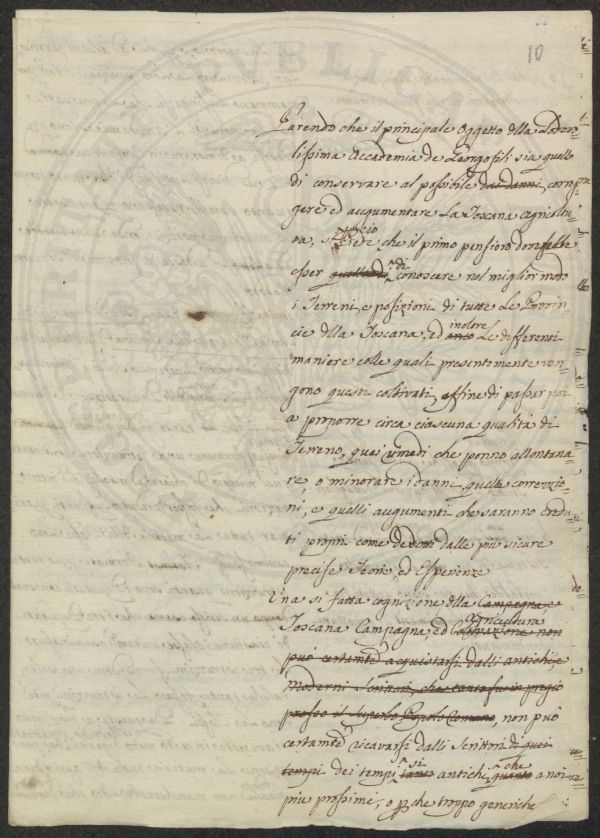 10
Parendo che il principale Oggetto dlla Lodevo-
lissima Accademia de Georgofili sia quello
di conservare al possibile dai danni, correg-
gere ed accqumentare La Toscana Agricoltu-
ra, che il primo pensiero dovrebbe
esser quello di di conoscere nel miglior modo
i Terreni, e posizioni di tutte Le Provin-
cie dlla Toscana, ed anco inoltre Le differenti
maniere colle quali presentemente ven-
gono questi coltivati, affine di passar poi
a proporre circa ciascuna qualità di
Terreno, quei rimedi che ponno allontana-
re, o minorare i danni, quelle correzzio-
ni, e quelli accqumenti che saranno credu-
ti proprj come dedotti dalle più sicure
precise Teorie, ed Esperienze
Una si fatta cognizione dlla Campagna, e
Toscana Campagna, ed Coltivazione Agricultura non
può certamte acquistarsi dalli antichi, e
Moderni Scrittori, che tanto fu in pregio
presso il Superbo Popolo Romano, non può
certamte ricavarsi dalli Scrittori di quei
tempi dei tempi si antichi, quanto che a noi
più prossimi, o p che troppo generiche